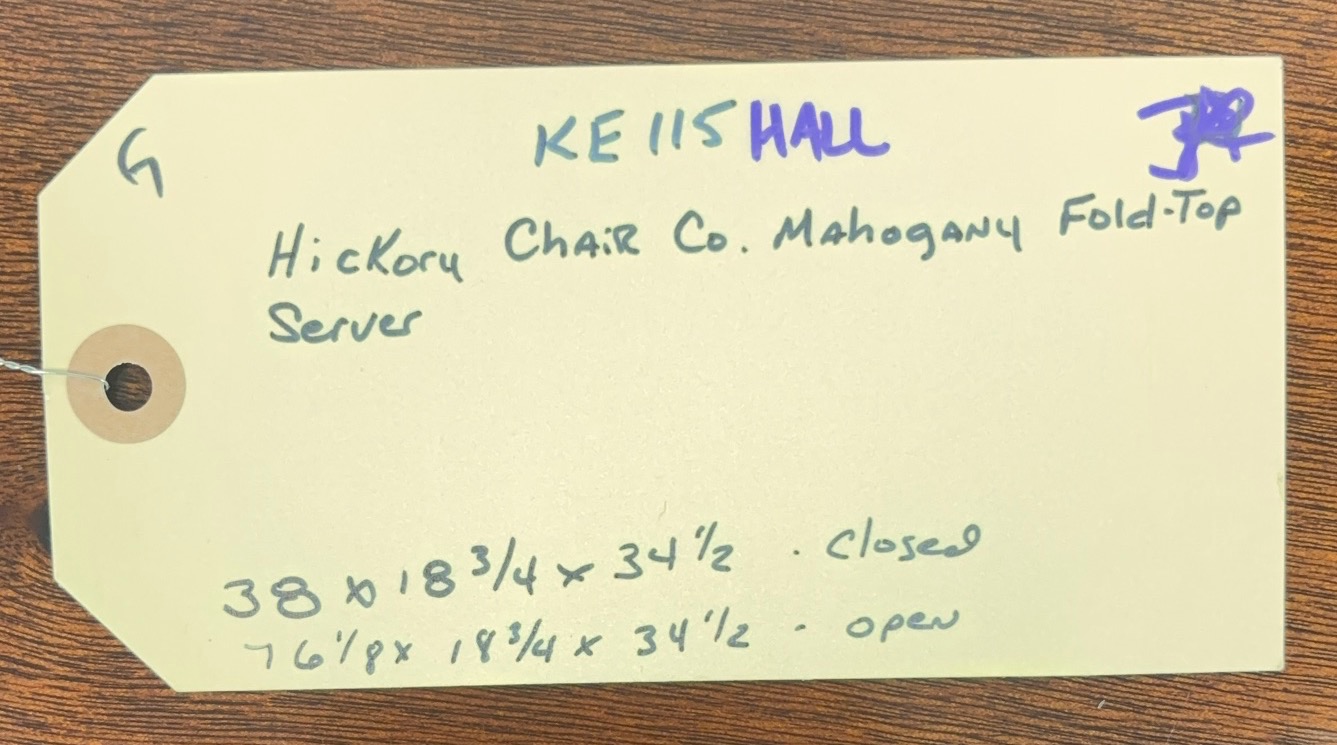 G
KE 115 HALL
Hickory Chair Co. Mahogany Fold-Top
Server
38 x 18 3/4 x 34 1/2 - closed
76 1/8 x 18 3/4 x 34 1/2 - open